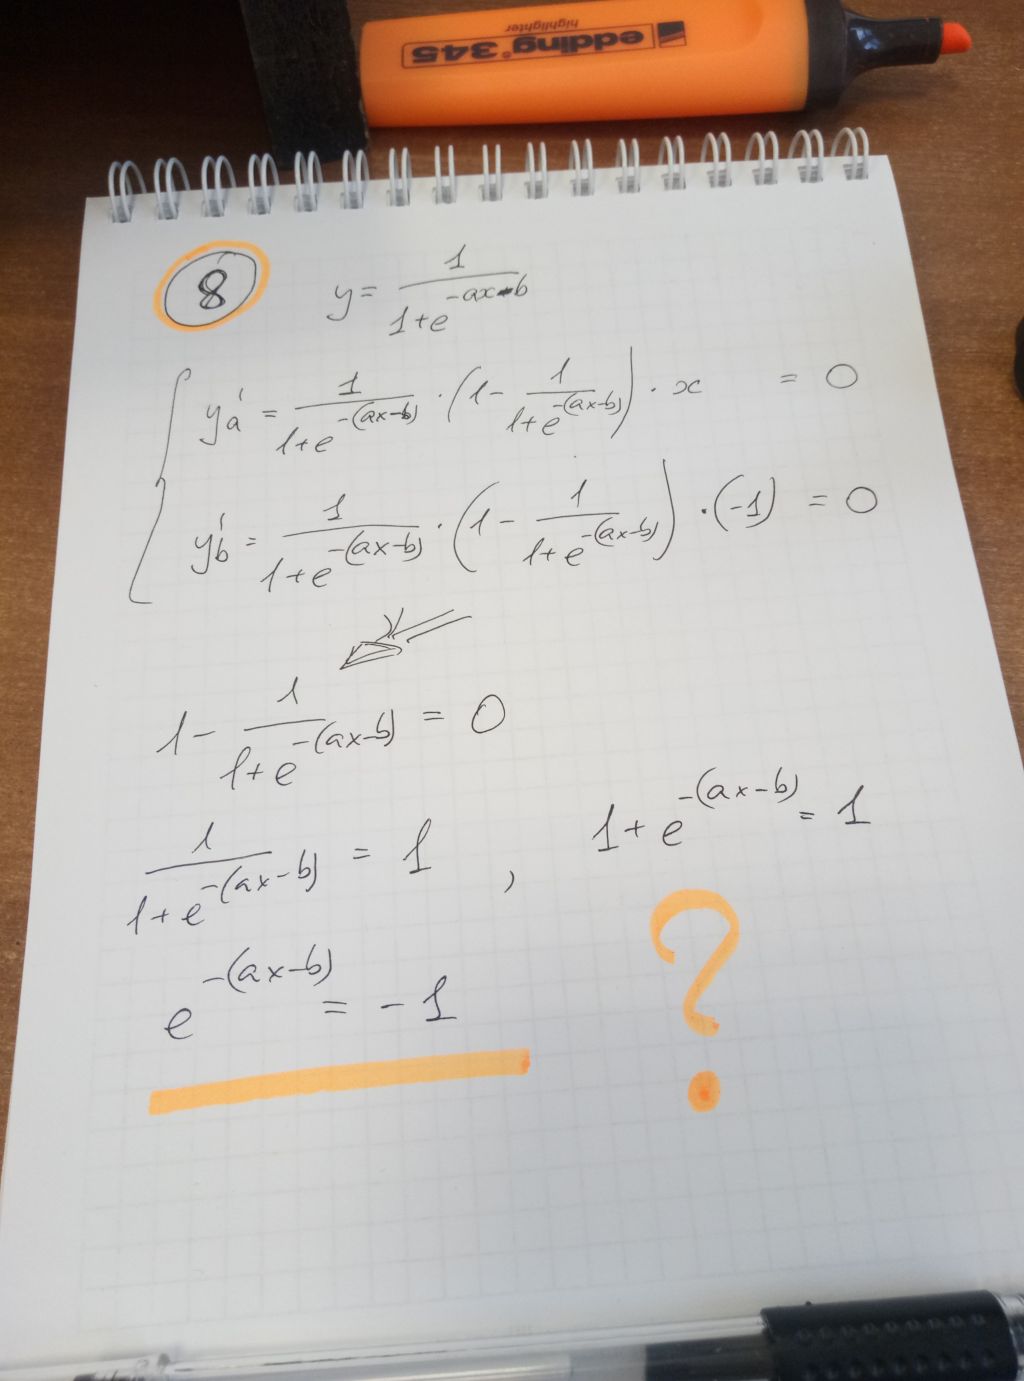 edding 345
highlighter
8
y = 1 / (1+e^(-ax-b))
y'a = 1 / (1+e^(-(ax-b))) · (1 - 1 / (1+e^(-(ax-b)))) · x = 0
y'b = 1 / (1+e^(-(ax-b))) · (1 - 1 / (1+e^(-(ax-b)))) · (-1) = 0
1 - 1 / (1+e^(-(ax-b))) = 0
1 / (1+e^(-(ax-b))) = 1 , 1+e^(-(ax-b)) = 1
e^(-(ax-b)) = -1
?